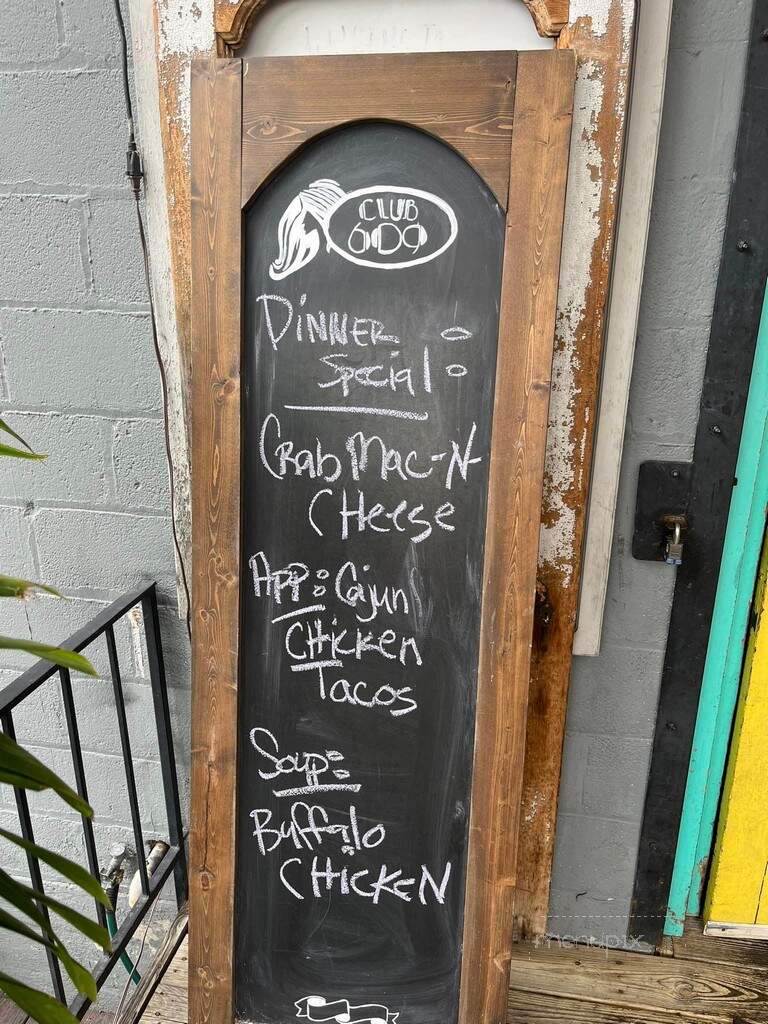 CLUB
609
DINNER
Special:
Crab Mac-N-
CHeese
App: Cajun
CHicken
Tacos
Soup:
Buffalo
CHICKEN
menupix